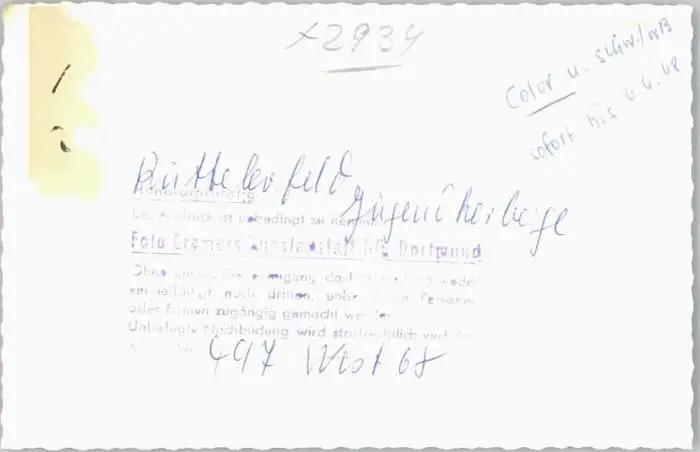 x2934
Color u. schw./wß.
sofort bis 6.6.68
Honorarpflichtig
Bei Abdruck ist unbedingt zu nennen
Jugendherberge
Foto Cramers Kunstanstalt KG, Dortmund
Ohne unsere Genehmigung darf weder
vervielfältigt noch dritten, Personen
oder Firmen zugängig gemacht werden.
Unbefugte Nachbildung wird strafrechtlich
497 West 68